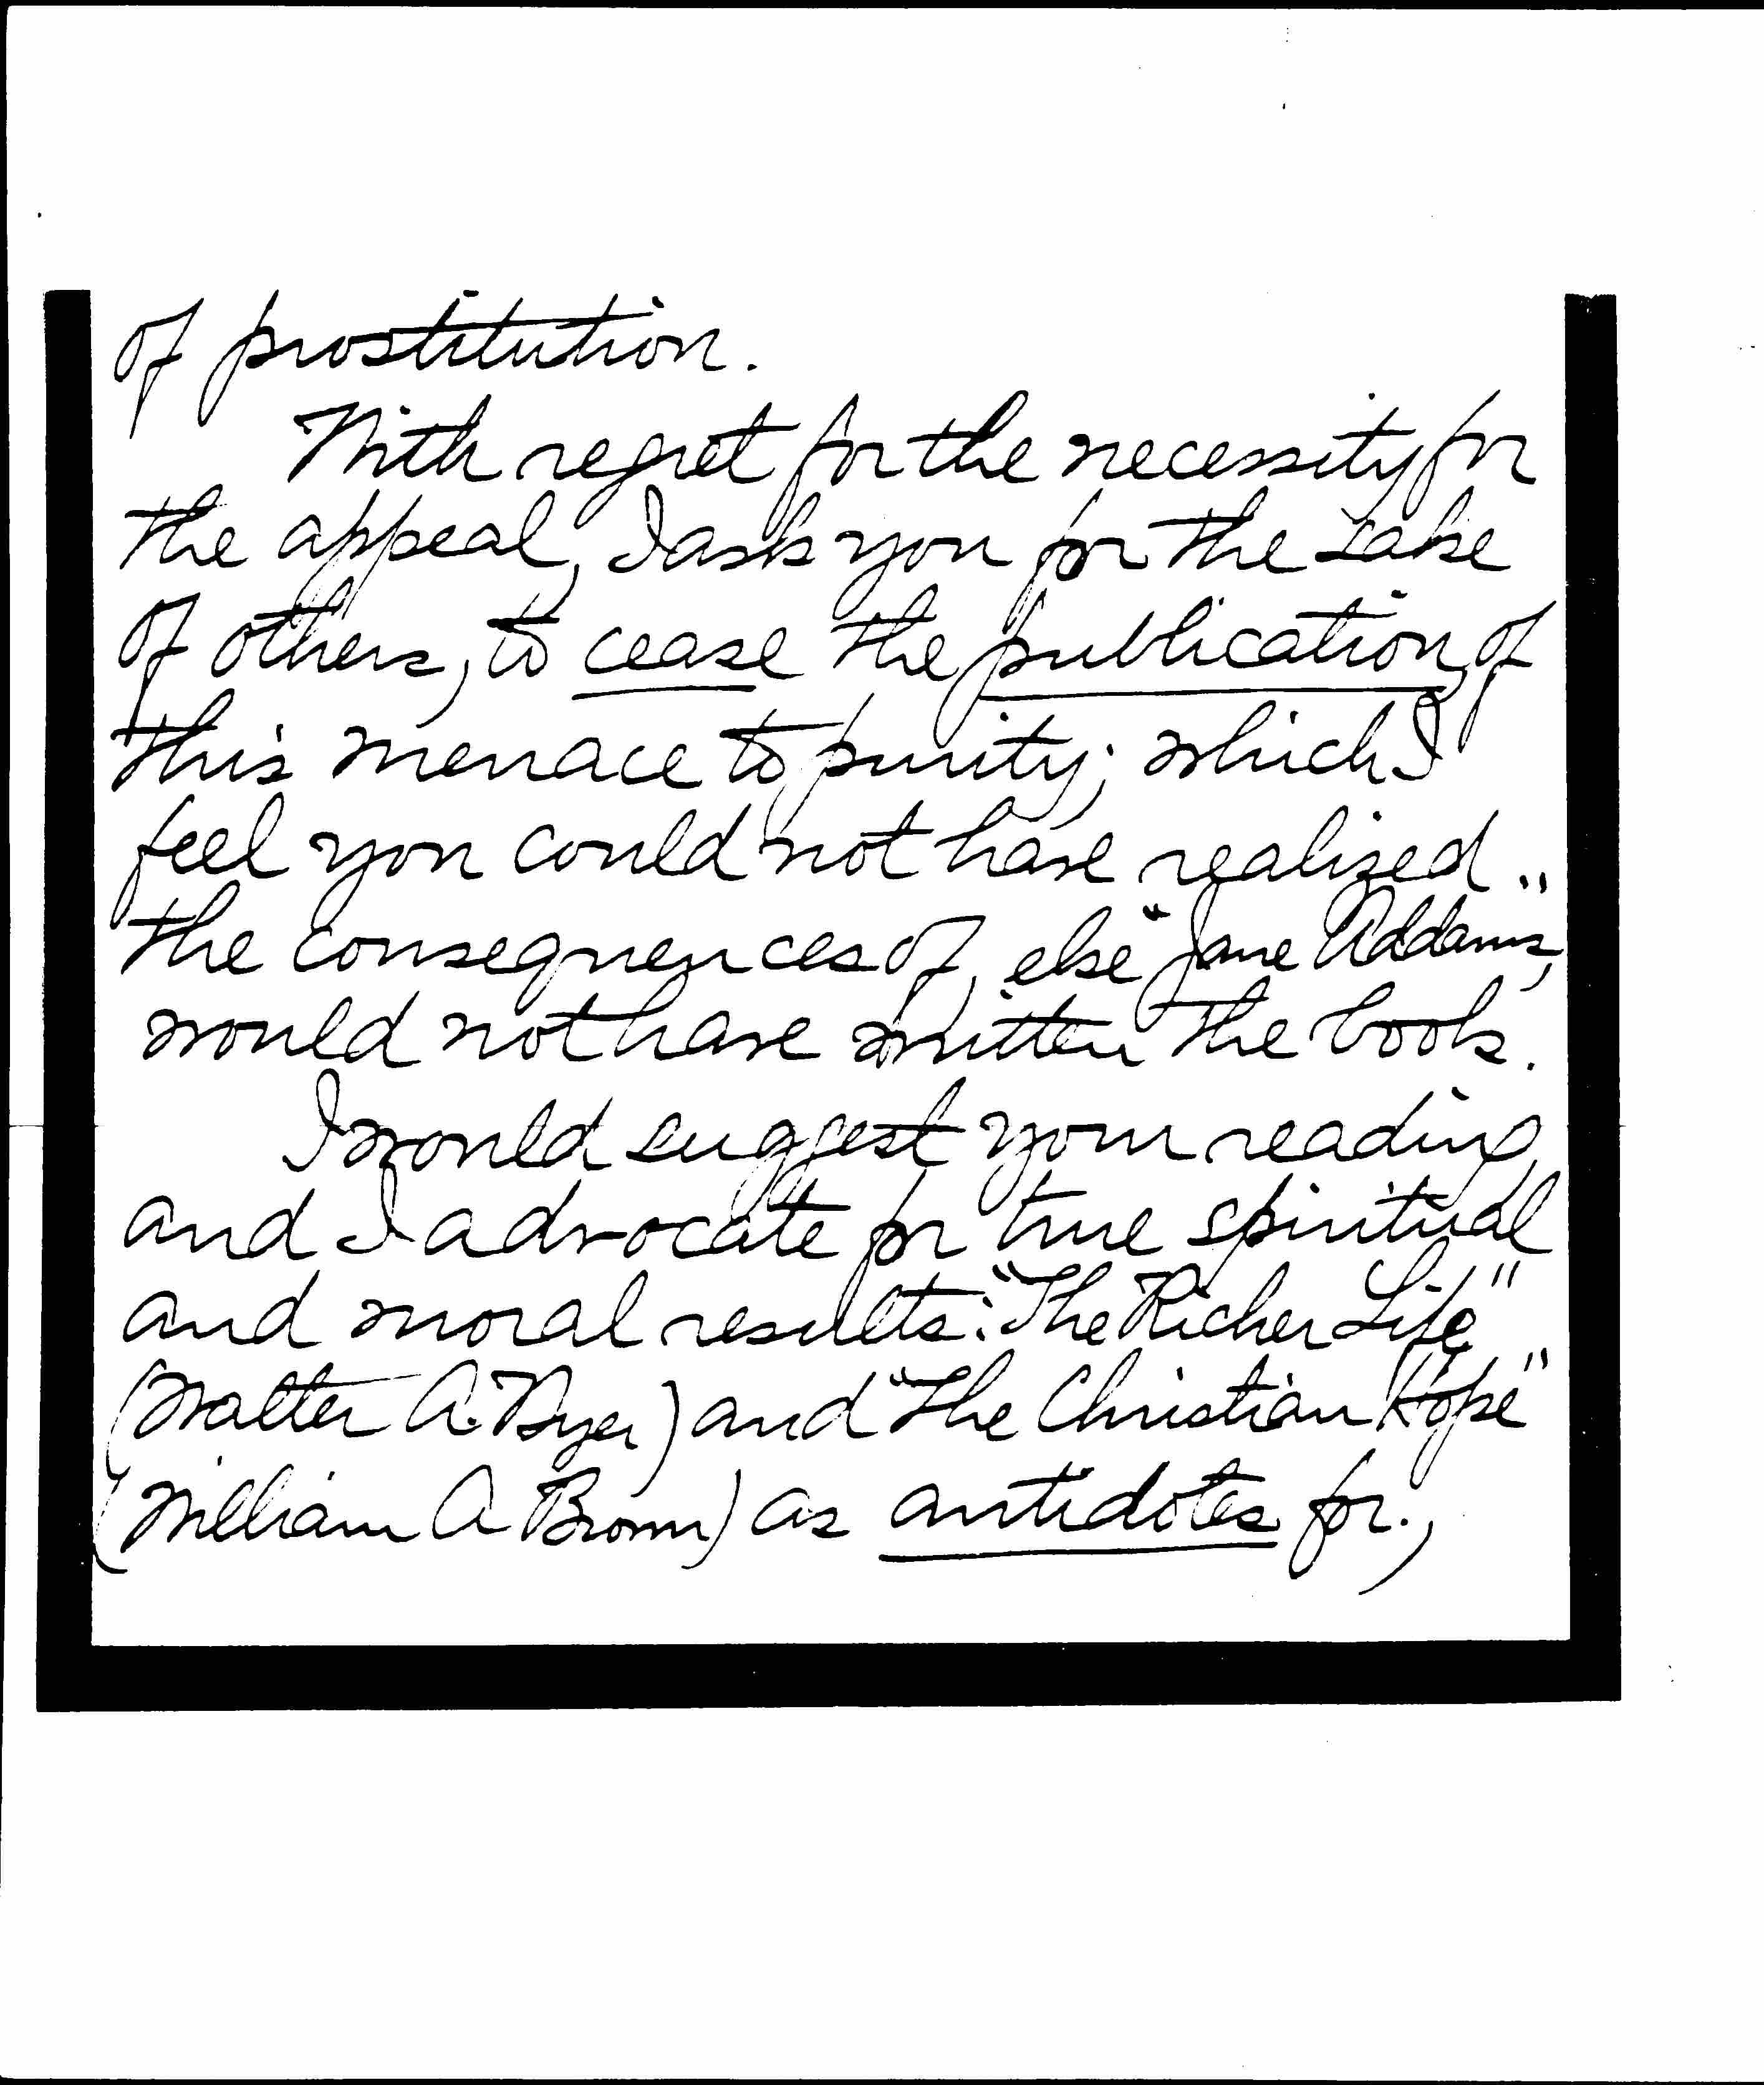 of prostitution.
With regret for the necessity for
the appeal, I ask you for the sake
of others, to cease the publication, of
this menace to purity; which I
feel you could not have realized
the consequences of, else "Jane Addams",
would not have written the book.
I would suggest your reading
and I advocate for true spiritual
and moral results: "The Richer Life"
(Walter A. Dyer) and "The Christian Hope"
(William A Brown) as antidotes for.,